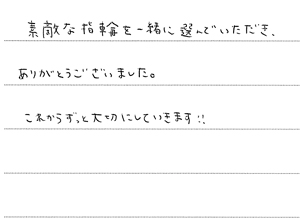 素敵な指輪を一緒に選んでいただき、
ありがとうございました。
これからずっと大切にしていきます!!